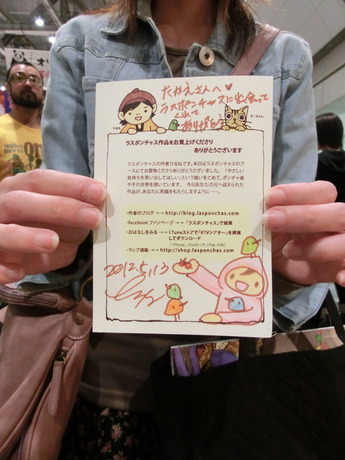 たかえさんへ♥
ラスポンチャスに出会って
くれて
ありがとう
ラスポンチャス作品をお買上げくださり
ありがとうございます
ラスポンチャス作者のひるねです。本日はラスポンチャスの
ブースにてお買物くださりありがとうございました。「やさしい
気持ちを思い出してほしい」という想いをこめて、ポンチャ達
やその世界を描いています。 今日あなたの元へ迎えられた
作品が、あなたに笑顔をもたらしますように……。
・作者のブログ →→ http://blog.lasponchas.com
・facebook ファンページ →→ 「ラスポンチャス」で検索
・おはなしをみる →→ iTunesストアで「KTVシアター」を検索
してダウンロード
(iPhone／iPodタッチ／iPad 対応)
・ウェブ通販 →→ http://shop.lasponchas.com
2012.5.13